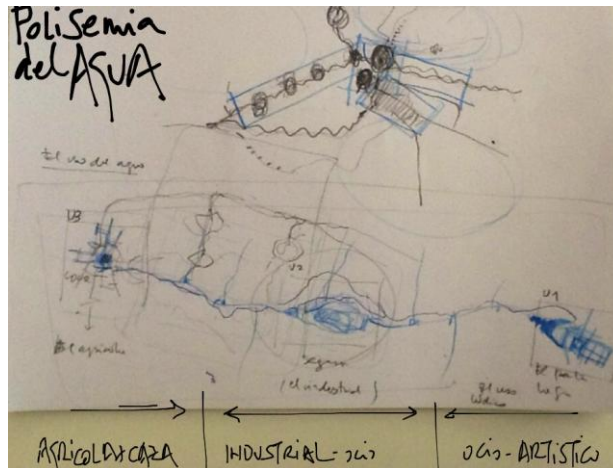 Polisemia
del AGUA
El uso del agua
U3
U2
U1
(el industrial)
El uso
AGRICOLA+CAZA
INDUSTRIAL-ocio
ocio-ARTISTICO